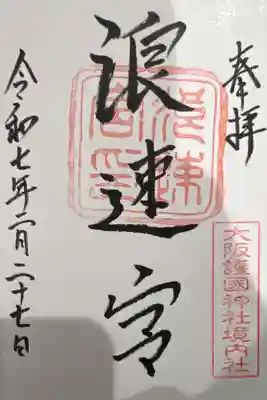 奉拝
浪速宮
浪速宮印
大阪護國神社境内社
令和七年二月二十七日